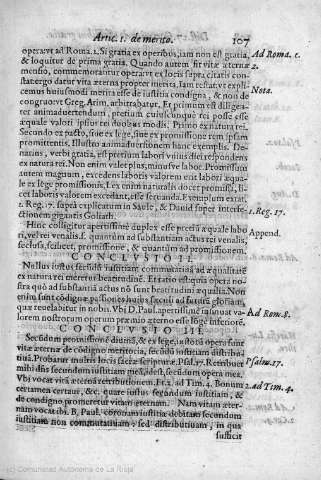 Artic. 1. de merito. 107
operatvr ad Roma. 1. Si gratia ex operibus, iam non est gratia, Ad Roma. c.
& loquitur de prima gratia. Quando autem fit vitæ æternæ 2.
mensio, commemorantur operæ vt ex locis supra citatis con-
stat ergo datur vita æterna propter merita, Iam restat vt expli-
cemus huiusmodi merita esse de iustitia condigna, & non de Nota.
congruo vt Greg. Arim. arbitrabatur. Et primum est diligen-
ter animaduertendum, pretium cuiuscunque rei posse esse
æquale valori ipsius rei duobus modis. Primo ex natura rei.
Secundo ex pacto, siue ex lege, siue ex promissione rem ipsam
promittentis. Illustro animaduertionem hanc exemplis. De-
narius, verbi gratia, est pretium labori vnius diei respondens
ex natura rei. Non enim valet plus, minusve labor. Promissum
autem magnum, excedens laboris valorem erit iusta laboris
ex lege promissionis, Lex enim naturalis docet promissa, li-
cet laboris valorem excedat, esse seruanda. Exemplum extat.
1. Reg. 17. supra explicatum in Saule, & Dauid super interfe- 1. Reg. 17.
ctionem gigantis Goliath.
Hinc colligitur apertissime duplex esse precia æquale labo Append.
ri, vel rei venalis. s. quantum ad substantiam actus rei venalis,
seclusa, scilicet, promissione, & quantum ad promissionem.
CONCLVSIO II.
Nullus iustus secūdū iustitiam commutatiuā ad æqualitatē
ex natura rei meretur beatitudinē. Et ratio est quia opera no-
stra quo ad substantiā actus nō sunt beatitudini æqualia. Non
enim sunt cōdignæ passiones huius sæculi ad futurā gloriam,
quæ reuelabitur in nobis. Vbi D. Paul. apertissimē insinuat va- Ad Rom. 8.
lorem nostrorum operum præmio æterno esse lōgē inferiorē.
CONCLVSIO III.
Secūdum promissionē diuinā, & ex lege, iusti opera sunt
vitæ æternæ de cōdigno meritoria, secūdū iustitiam distribu-
tiuā. Probatur multis locis sacræ scripturæ. Psal. 17. Retribuet Psalm. 17.
mihi dñs secundum iustitiam meā, idest, secūdum opera mea,
Vbi vocat vitā æternā retributionem. Et 2. ad Tim. 4. Bonum 2. ad Tim. 4.
certamen certaui, &c. quare iustus secundum iustitiam, &
de condigno promeretur vitam æternam. Nam vitam æter-
nam vocat ibi. B. Paul. coronam iustitiæ debitam secundum
iustitiam non commutatiuam, sed distributiuam, in qua
sufficit
(c) Comunidad Autónoma de La Rioja